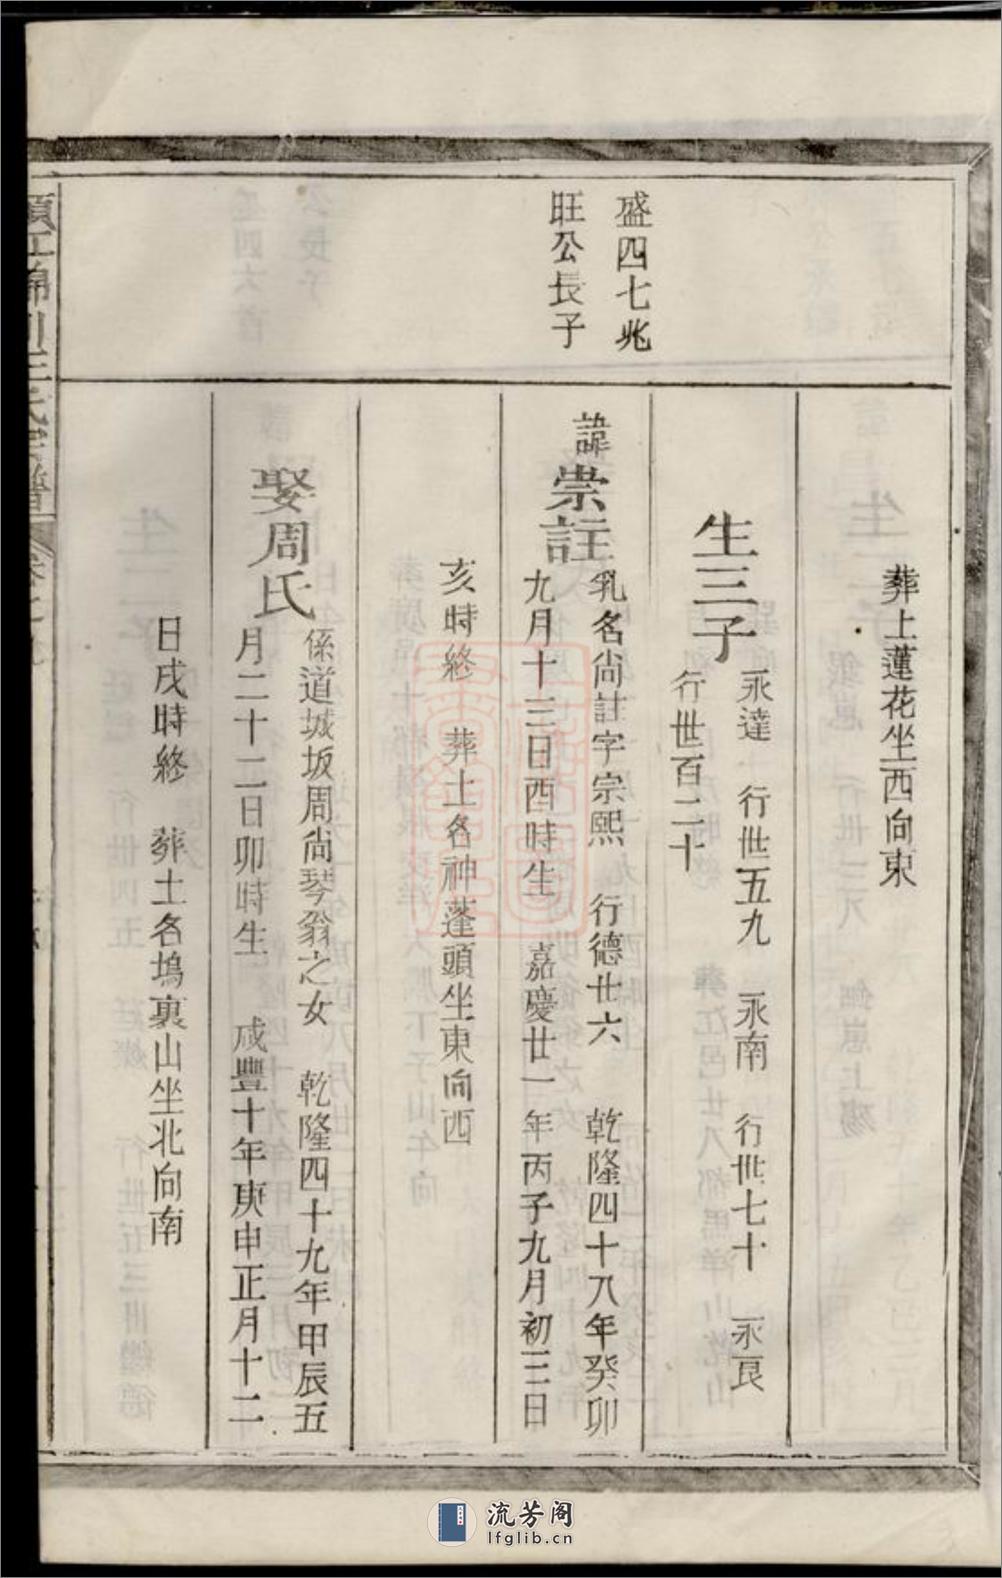 盛四七兆
旺公長子
葬上蓮花坐西向東
生三子
永達 行世五九 永南 行世七十 永良
行世百二十
諱崇註
乳名尙註字宗熙 行德廿六 乾隆四十八年癸卯
九月十三日酉時生 嘉慶廿一年丙子九月初三日
亥時終 葬土名神蓬頭坐東向西
娶周氏
係道城坂周尙琴翁之女 乾隆四十九年甲辰五
月二十二日卯時生 咸豐十年庚申正月十二
日戌時終 葬土名塢裏山坐北向南
流芳阁
lfglib.cn